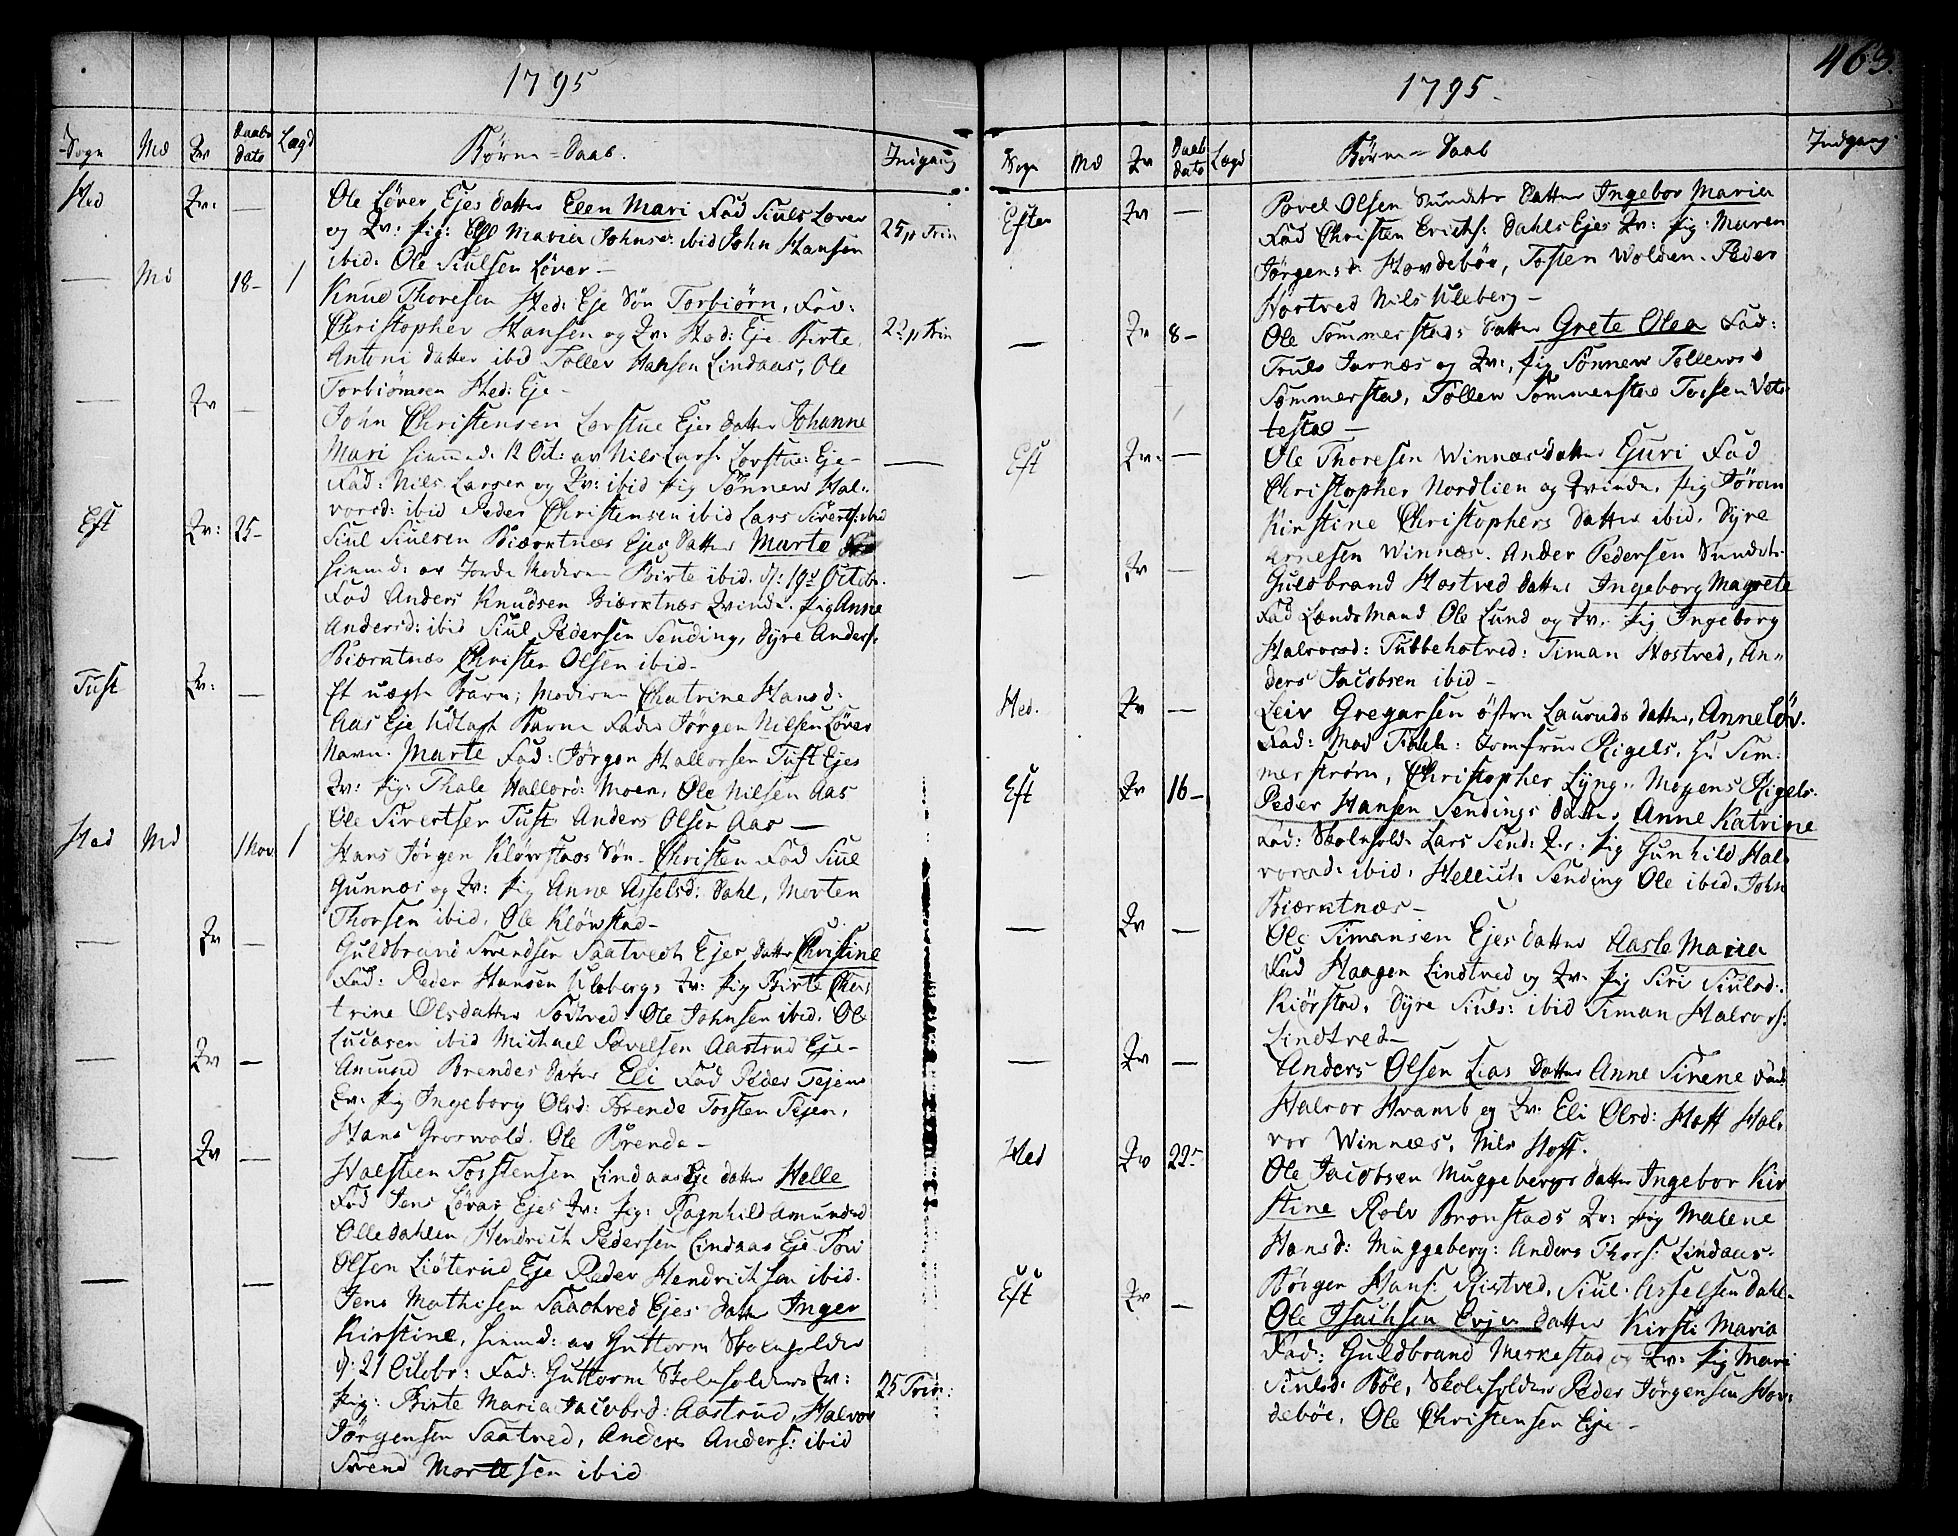 463.
1795
Sogn Md Qv Daabs dato Lægd Børne=Daab. Indgang
Hed Qv: — Ole Løver Ejes datter Elen Mari Fad Siuls Løver
og Qv: pig: Else Maria Johnsd: ibid John Hansen 25 p Trin
ibid: Ole Siulsen Løver —
— Md 18- 1 Knud Thoresen Hed: Eje Søn Torbiørn, Fad:
Christopher Hansen og Qv: Hed: Eje Birte 22 p Trin
Antoni datter ibid Tollev Hansen Lindaas, Ole
Torbiørnsen Hed: Eje —
— Qv — John Christensen Lørstue Ejes datter Johanne
Mari hiemmed. 12 Oct: av Nils Lars: Lørstue: Eje —
Fad: Nils Larsen og Qv: ibid pig Sønnew Hal:
vorsd: ibid Peder Christensen ibid Lars Siverts: ibid
Eft Qv: 25- Siul Siulsen Biærntnæs Ejes Datter Marte
hiemmd: av Jorde Moderen Birte ibid. d: 19d Octobr.
Fad Anders Knudsen Biærntnæs Qvinde. pig Anne
Andersd: ibid Siul Pedersen Sending, Dyre Anders:
Biærntnæs Christen Olsen ibid —
Tuft Qv: — Et uægte Barn; Moderen Chatrine Hansd:
Aas Eje Udlagt Barne Fader Jørgen Nilsen Løver
Navn. Marte Fad: Jørgen Hallorsen Tuft Ejes
Qv: pig: Thale Hallord: Moen, Ole Nilsen Aas
Ole Sivertsen Tuft Anders Olsen Aas —
Hed Md 1 Nov 1 Hans Jørgen Kløvstads Søn. Christen Fad Siul
Gunnæs og Qv: pig Anne Asselsd: Dahl, Morten
Thorsen ibid. Ole Kløvstad —
— Qv — Guldbrand Svendsen Saatvedt Ejes datter Christine
Fad: Peder Hansen Ulebergs Qv: pig Birte Cha
trine Olsdatter Tostved: Ole Johnsen ibid. Ole
Lucasen ibid Michael Povelsen Aastrud Eje —
— Qv — Amund Brendes datter Eli Fad Peder Tejens
Qv: pig Ingeborg Olsd: Brende Torsten Tejen,
Hans Gronwold. Ole Brende —
— Qv — Halsteen Torstensen Lindaas Eje datter Helle
Fad Jens Løver Ejes Qv: pig: Ragnhild Amundsd
Olledalen Hendrich Pedersen Lindaas Eje Tow
Olsen Liøterud Eje Peder Hendrichsen ibid.
— — Jens Mathisen Saatved Ejes datter Inger
Kirstine, hiemd: av Guttorm Skoleholder
d: 21 Octobr: Fad: Guttorm Skoleholders Qv:
pig: Birte Maria Jacobsd: Aastrud, Halvor 25 Trin:
Jørgensen Saatved, Anders Anders: ibid
Svend Mortesen ibid
1795.
Sogn Md Qv Daabs dato Lægd Børne=Daab Indgang
Efter Qv — Povel Olsen Sundets Datter Ingebor Maria
Fad Christen Erichs: Dahls Ejes Qv: pig: Maren
Jørgensd: Hovdebøe, Tosten Wolden. Peder
Hostved Nils Uleberg —
— Qv 8- Ole Sommerstads datter Grete Olea Fad:
Truls Jarnæs og Qv:, pig Sønnew Tollewsd
Sommerstad, Tollew Sommerstad Tosten Vet
testad —
Eft Qv: — Ole Thoresen Winnæs datter Guri Fad
Christopher Nordlien og Qvinde, pig Jøran
Kirstine Christophers datter ibid, Dyre
Arnesen Winnæs. Ander Pedersen Sundet.
— Qv — Guldbrand Hostved datter Ingeborg Magrete
Fad Lændsmand Ole Lund og Qv. pig Ingeborg
Halvorsd: Tubbehotved: Timan Hostved, An-
ders Jacobsen ibid —
Hed. Qv — Leiv Gregarsen østre Lauruds datter, Anne Løv.
Fad: Mad Jomfrue Rigels, Hr Sim:
merstrøm, Christopher Lyng, Mogens Rigels.
Eft Qv 16- Peder Hansen Sendings datter Anne Katrine
Fad: Skolehold: Lars Send: Qv: pig Gunhild Hal
vorsd: ibid, Hellich Sending Ole ibid, John
Biærntnæs —
— Qv — Ole Timansen Ejes datter Aaste Maria
Fad Haagen Lindtved og Qv: pig Siri Siulsd:
Kiørstad, Dyre Siuls: ibid Timan Halvors:
Lindtved —
— Qv — Anders Olsen Lias Datter Anne Sirene Fad
Halvor Hvamb og Qv: Eli Olsd: Hoff Hal
vor Winnæs, Nils Hoff.
Hed Qv 22- Ole Jacobsen Muggebergs datter Ingebor Kir
stine Rolv Bronstads Qv: pig Malene
Hansd: Muggeberg: Anders Thors: Lindaas.
Børgen Hans: Ristved, Siul: Asselsen Dahl
Eft Qv — Ole Isachsen Evjes datter Kirsti Maria
Fad: Guldbrand Merkestad og Qv: pig Mari
Siulsd: Bøe, Skoleholder Peder Jørgensen Hov:
debøe, Ole Christensen Eje —